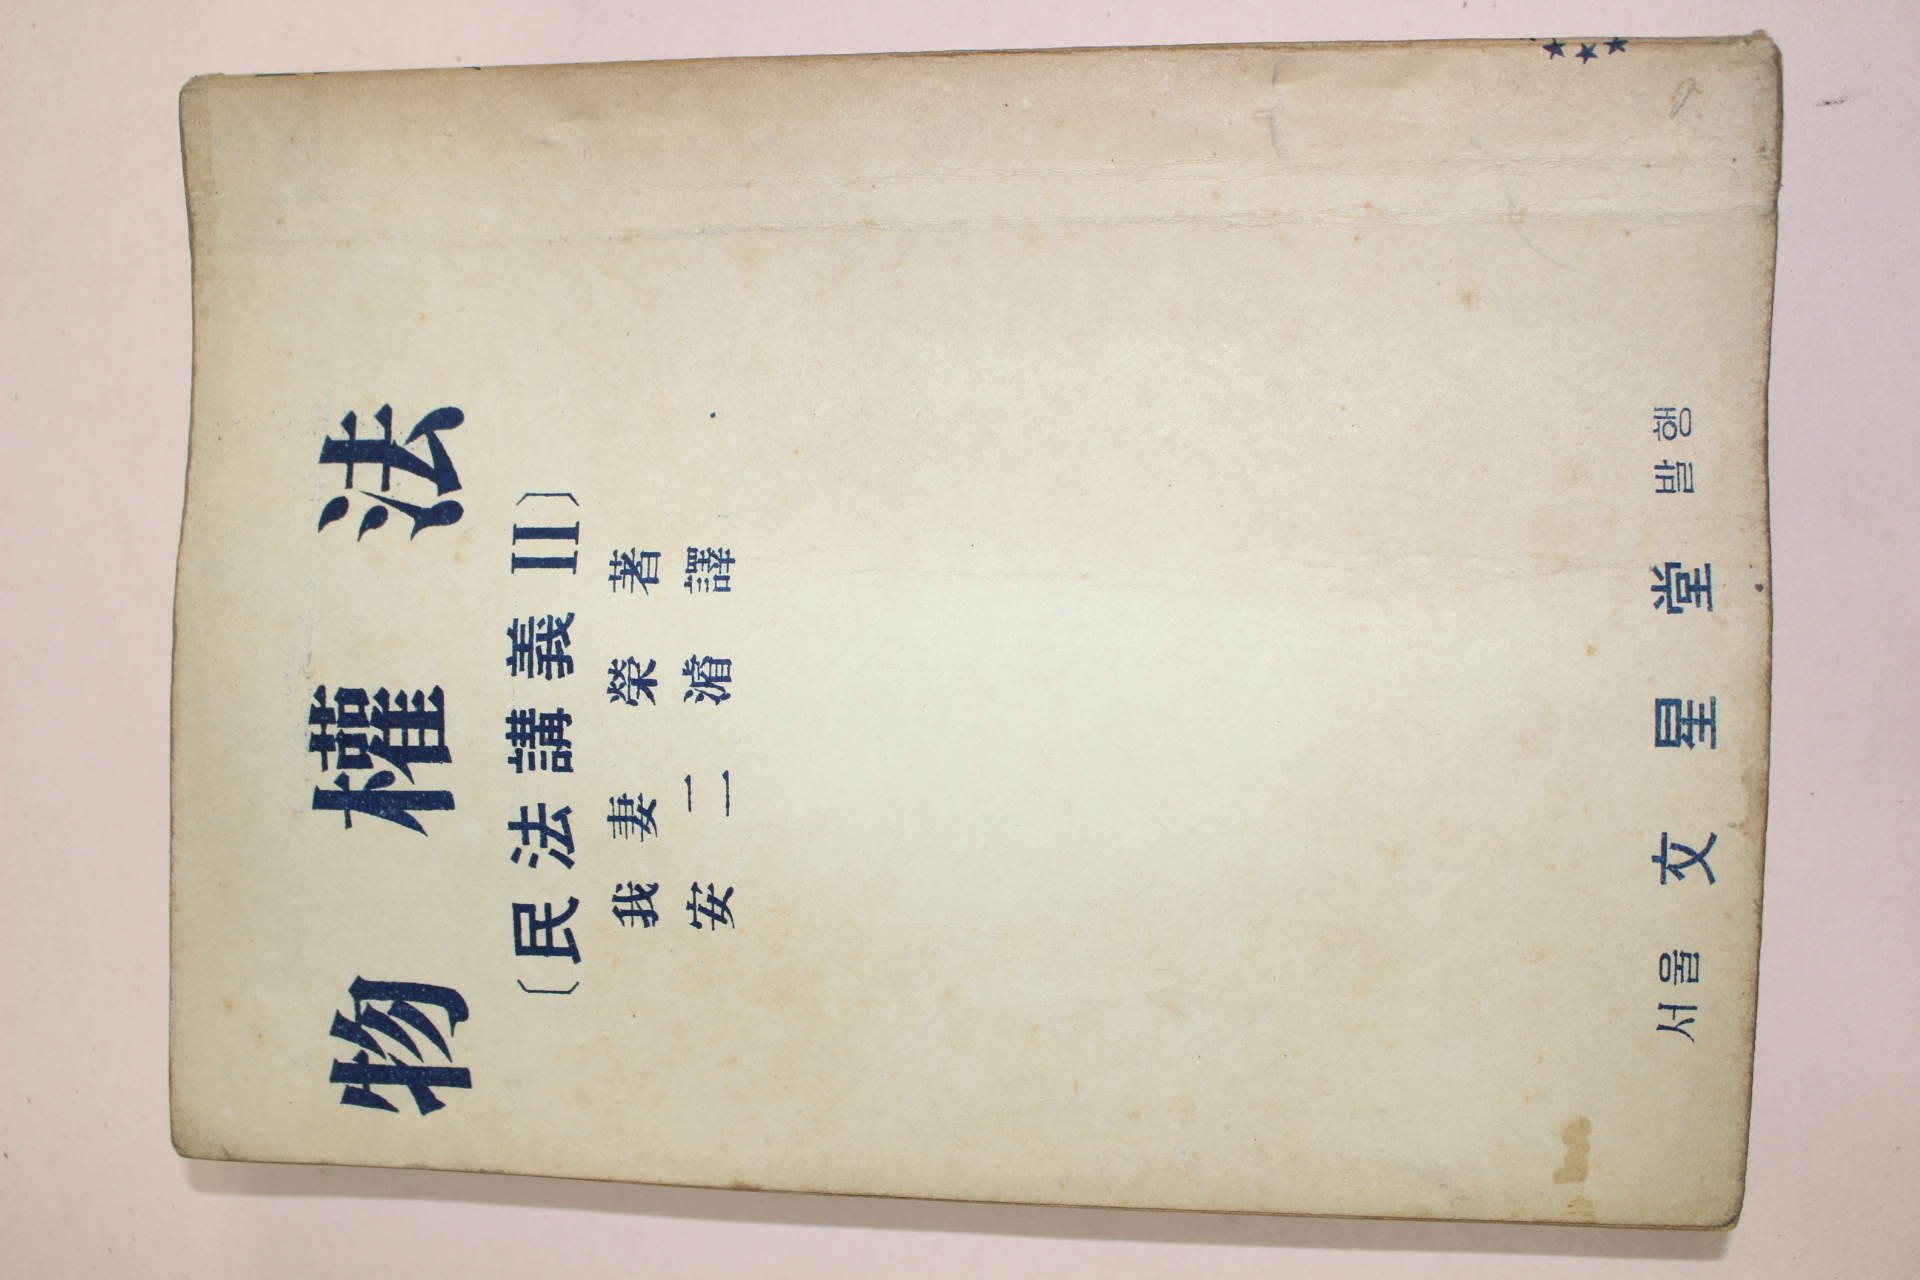 物 權 法
〔民法講義 II〕
我 妻 榮 著
安 二 濬 譯
서울 文 星 堂 발행